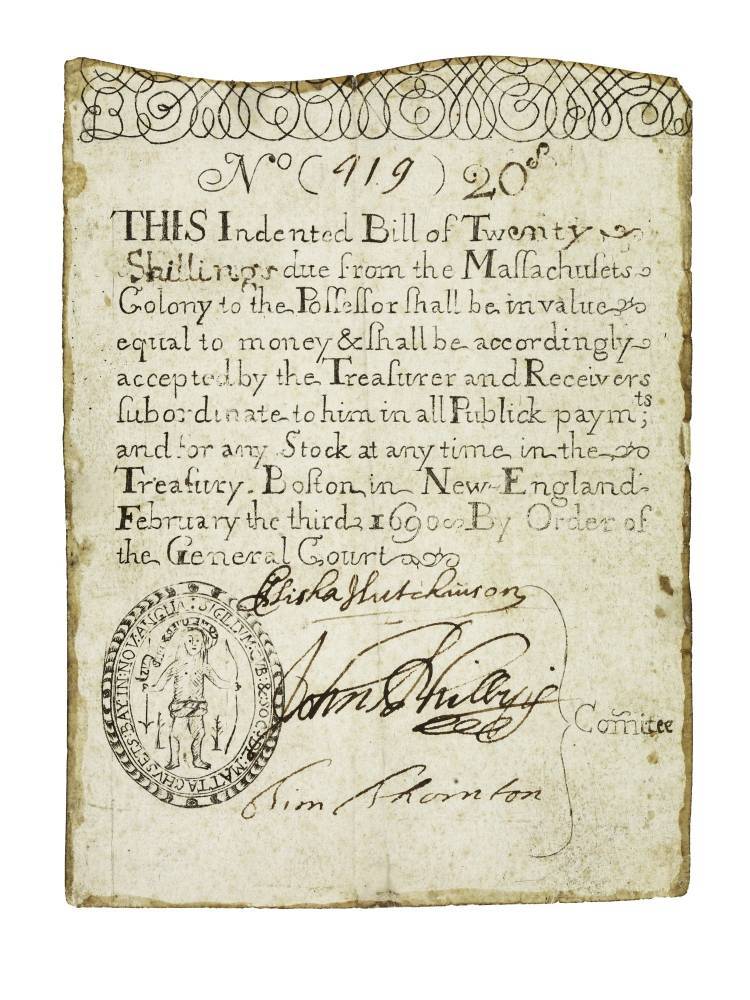 Nº (919) 20es
THIS Indented Bill of Twenty
Shillings due from the Maſſachuſets
Colony to the Poſſeſſor ſhall be in value
equal to money & ſhall be accordingly
accepted by the Treaſurer and Receivers
ſubordinate to him in all Publick paymts;
and for any Stock at any time in the
Treaſury. Boſton in New-England
February the third 1690. By Order of
the General Court
Elisha Hutchinson
John Phillips
Tim Thornton
Com̃itee
SIGILLUM: GUB: & SOC: DE: MATTACHVSETS: BAY: IN: NOV: ANGLIA: